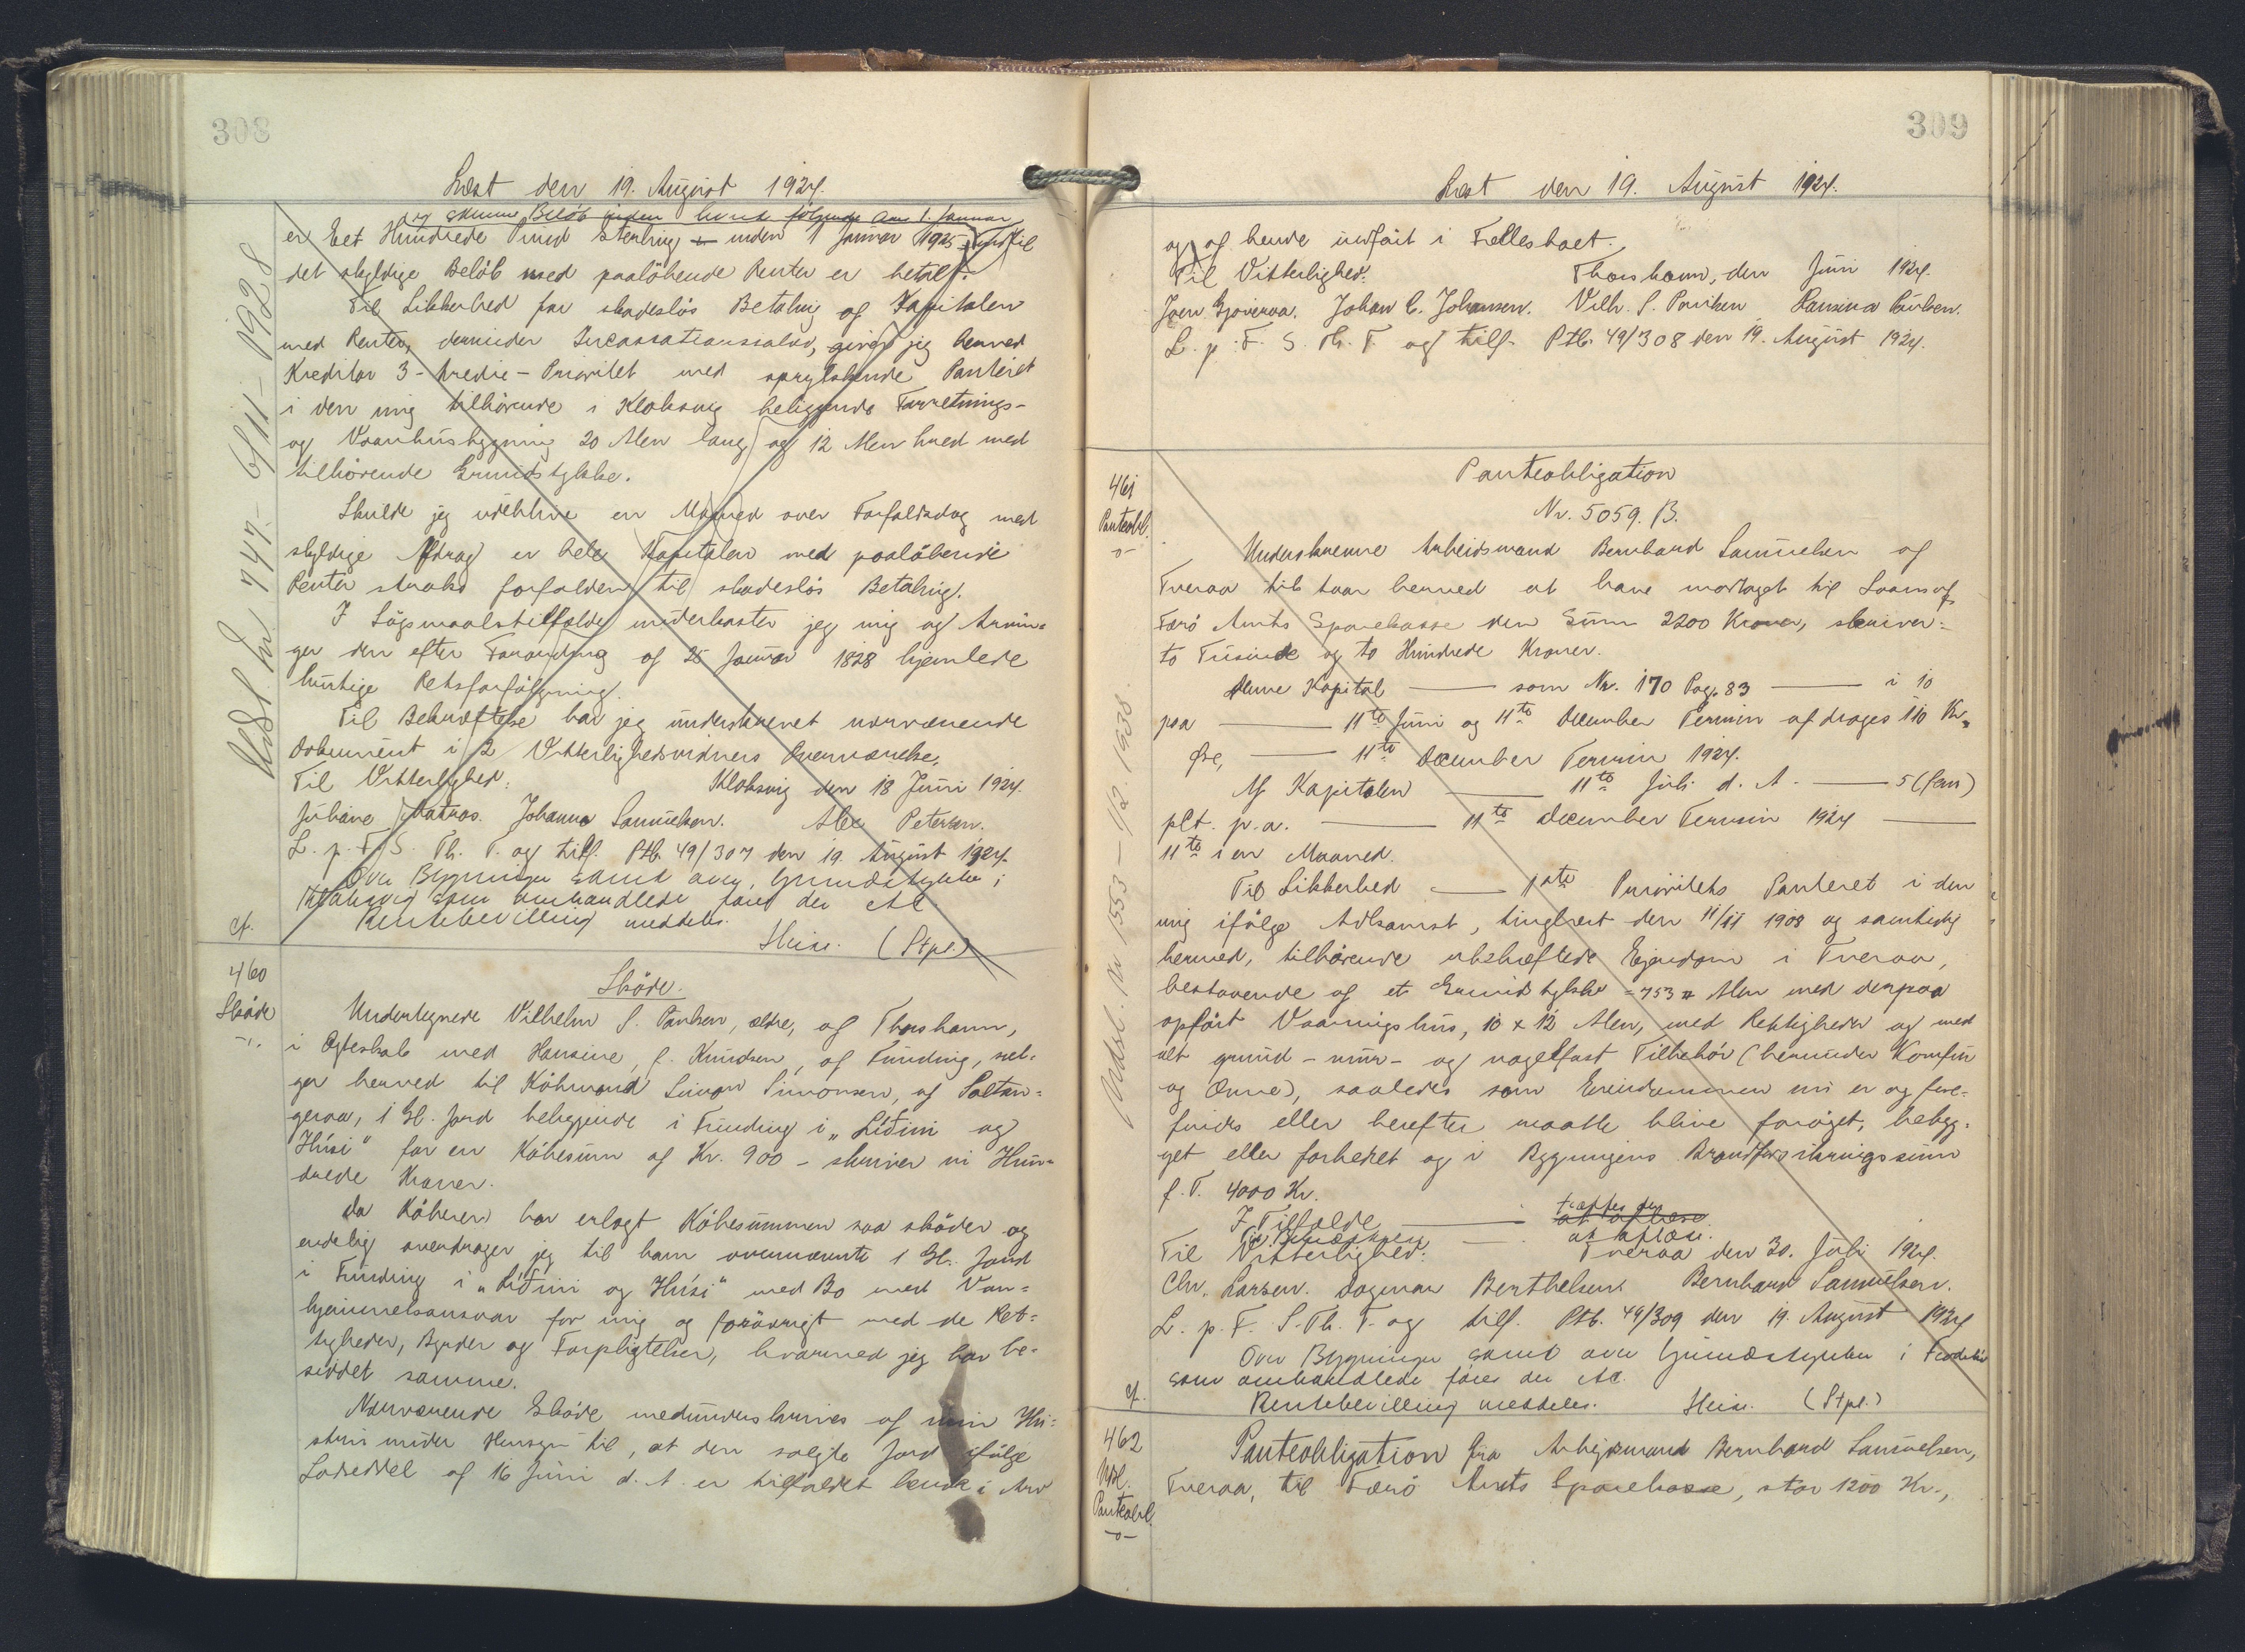 308
Læst den 19. August 1924.
og samme Beløb inden hvert følgende Aars 1. Januar
er Eet Hundrede Pund Sterling inden 1 Januar 1925 indtil
det skyldige Beløb med paaløbende Renter er betalt.
Til Sikkerhed for skadesløs Betaling af Kapitalen
med Renter, derunder Incassationssalær, giver jeg herved
Kreditor 3-tredie-Prioritet med oprykkende Panteret
i den mig tilhørende i Klaksvig beliggende Forretnings-
og Vaanhusbygning 20 Alen lang og 12 Alen bred med
tilhørende Grundstykke.
Skulde jeg udeblive en Maaned over Forfaldsdag med
skyldige Afdrag er hele Kapitalen med paaløbende
Renter straks forfalden til skadesløs Betaling.
I Søgsmaalstilfælde underkaster jeg mig og Arvin=
ger den efter Forordning af 25 Januar 1828 hjemlede
hurtige Retsforfølgning.
Til Bekræftelse har jeg underskrevet nærværende
Dokument i 2 Vitterlighedsvidners Overværelse.
Til Vitterlighed: Klaksvig den 18 Juni 1924.
Juliane Matras. Johanna Samuelsen. Alex Petersen.
L. p. F. S. Th. T. og tilf. Ptb. 49/307 den 19. August 1924.
Over Bygningen samt over Grundstykke i
Klaksvig som omhandlede føres der ct.
cf. Rentebevilling meddeles.
Heise. (Stpl.)
Udsl. Nr 747 - 6/11 - 1928
460
Skøde
Skøde.
Undertegnede Vilhelm S. Poulsen, ældre, af Thorshavn,
i Ægteskab med Hansine, f. Knudsen, af Funding, sæl-
ger herved til Købmand Simon Simonsen, af Saltan=
geraa, 1 Gl. Jord beliggende i Funding i „Líðini og
Húsi" for en Købesum af Kr. 900 - skriver ni Hun=
drede Kroner.
Da Køberen har erlagt Købesummen saa skøder og
endelig overdrager jeg til ham ovennævnte 1 Gl. Jord
i Funding i „Líðini og Húsi" med Bo med Van=
hjemmelsansvar for mig og forøvrigt med de Ret=
tigheder, Byrder og Forpligtelser, hvormed jeg har be-
siddet samme.
Nærværende Skøde medunderskrives af min Hu=
stru under Hensyn til, at den solgte Jord ifølge
Lodseddel af 16 Juni d. A. er tilfaldet hende i Arv
309
Læst den 19. August 1924.
og af hende indført i Fællesboet.
Til Vitterlighed: Thorshavn, den Juni 1924.
Joen Gjoveraa. Johan C. Johansen. Vilh. S. Poulsen Hansina Poulsen.
L. p. F. S. Th. T. og tilf. Ptb. 49/308 den 19. August 1924.
461
Panteobl.
-o-
Panteobligation
Nr. 5059. B.
Underskrevne Arbeidsmand Bernhard Samuelsen af
Tveraa tilstaar herved at have modtaget til Laans af
Færø Amts Sparekasse den Sum 2200 Kroner, skriver:
to Tusinde og to Hundrede Kroner.
Denne Kapital — som Nr. 170 Pag. 83 — i 10
paa — 11te Juni og 11te December Termin afdrages 110 Kr.
Øre, — 11te December Termin 1924.
Af Kapitalen — 11te Juli d. A. — 5 (fem)
pCt. p.a. — 11te December Termin 1924 —
11te i en Maaned.
Til Sikkerhed — 1ste Prioritets Panteret i den
mig ifølge Adkomst, tinglæst den 11/11 1908 og samtidig
hermed, tilhørende ubehæftede Ejendom i Tveraa,
bestaaende af et Grundstykke = 753 □ Alen med derpaa
opført Vaaningshus, 10 x 12 Alen, med Rettigheder og med
alt grund - mur - og nagelfast Tilbehør (herunder Komfur
og Ovne), saaledes som Ejendommen nu er og fore-
findes eller herefter maatte blive forøget, bebyg-
get eller forbedret og i Bygningens Brandforsikringssum
f.T. 4000 Kr.
I Tilfælde — træffes der
Til Bekræftelse — at aflæse.
Til Vitterlighed: Tveraa den 30. Juli 1924.
Chr. Larsen. Dagmar Berthelsen. Bernhard Samuelsen.
L. p. F. S. Th. T. og tilf. Ptb. 49/309 den 19. August 1924
Over Bygningen samt over Grundstykke i Froðebø
som omhandlede føres der ct.
cf. Rentebevilling meddeles. Heise. (Stpl.)
Udsl. Nr 1553 - 1/2. 1938.
462
Udsl.
Panteobl.
-o-
Panteobligation fra Arbejdsmand Bernhard Samuelsen,
Tveraa, til Færø Amts Sparekasse, stor 1200 Kr.,